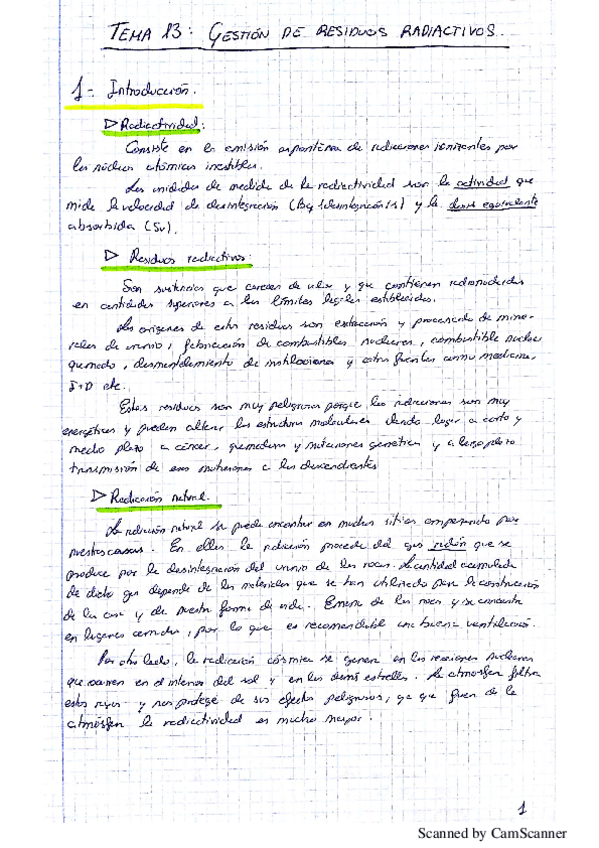 TEMA 13: GESTIÓN DE RESIDUOS RADIACTIVOS.
1- Introducción.
▷ Radiactividad:
Consiste en la emisión espontánea de radiaciones ionizantes por
los núcleos atómicos inestables.
Las unidades de medida de la radiactividad son la actividad que
mide la velocidad de desintegración (Bq (desintegración/s) y la dosis equivalente
absorbida (Sv).
▷ Residuos radiactivos
Son sustancias que carecen de uso y que contienen radionucleidos
en cantidades superiores a los límites legales establecidos.
Los orígenes de estos residuos son extracción y procesado de mine-
rales de uranio, fabricación de combustibles nucleares, combustible nuclear
quemado, desmantelamiento de instalaciones y otras fuentes como medicina,
I+D etc.
Estos residuos son muy peligrosos porque las radiaciones son muy
energéticas y pueden alterar las estructuras moleculares dando lugar a corto y
medio plazo a cáncer, quemaduras y mutaciones genéticas y a largo plazo
transmisión de esas mutaciones a los descendientes
▷ Radiación natural.
La radiación natural se puede encontrar en muchos sitios empezando por
nuestras casas. En ellas la radiación procede del gas radón que se
produce por la desintegración del uranio de las rocas. La cantidad acumulada
de dicho gas depende de los materiales que se han utilizado para la construcción
de la casa y de nuestra forma de vida. Emana de las rocas y se concentra
en lugares cerrados, por lo que es recomendable una buena ventilación.
Por otro lado, la radiación cósmica se genera en las reacciones nucleares
que ocurren en el interior del sol y en las demás estrellas. La atmósfera filtra
estos rayos y nos protege de sus efectos peligrosos, ya que fuera de la
atmósfera la radiactividad es mucho mayor.
1
Scanned by CamScanner